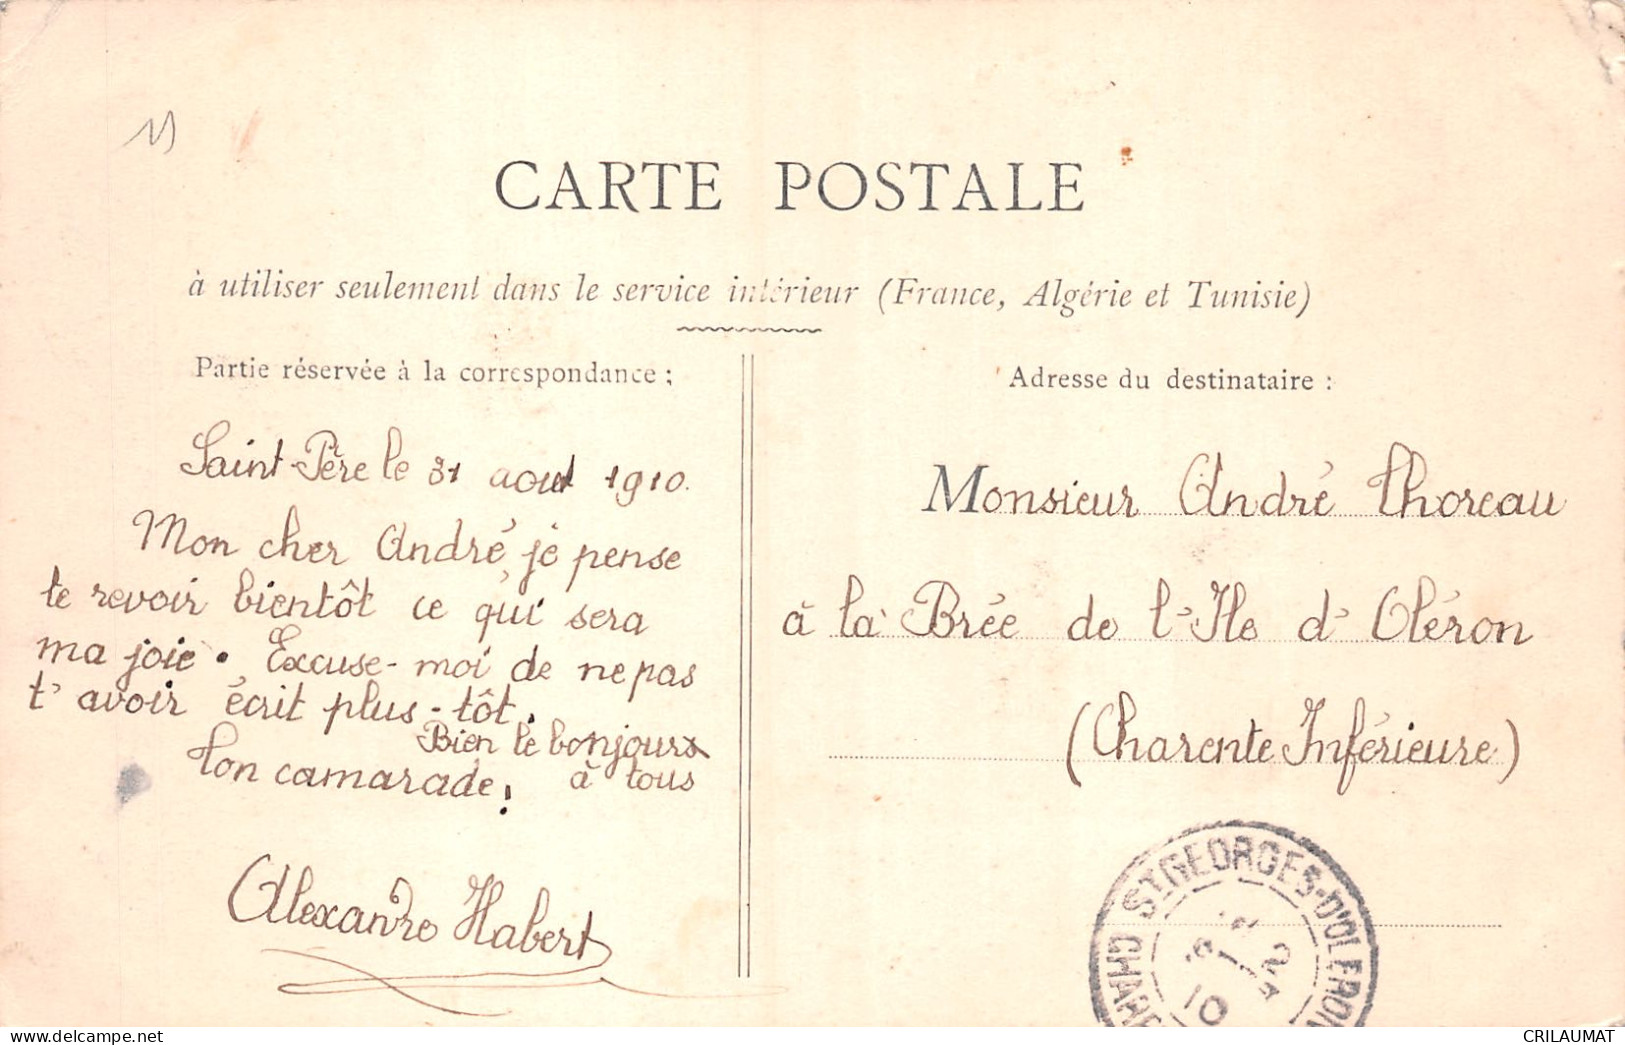 CARTE POSTALE
à utiliser seulement dans le service intérieur (France, Algérie et Tunisie)
Partie réservée à la correspondance :
Saint-Père le 31 aout 1910.
Mon cher André, je pense
te revoir bientôt ce qui sera
ma joie. Excuse-moi de ne pas
t'avoir écrit plus-tôt.
Bien le bonjours
à tous
Ton camarade.
Alexandre Habert
Adresse du destinataire :
Monsieur André Thoreau
à la Brée de l'Ile d'Oléron
(Charente Inférieure)
ST GEORGES-D'OLERON
10
delcampe.net
CRILAUMAT